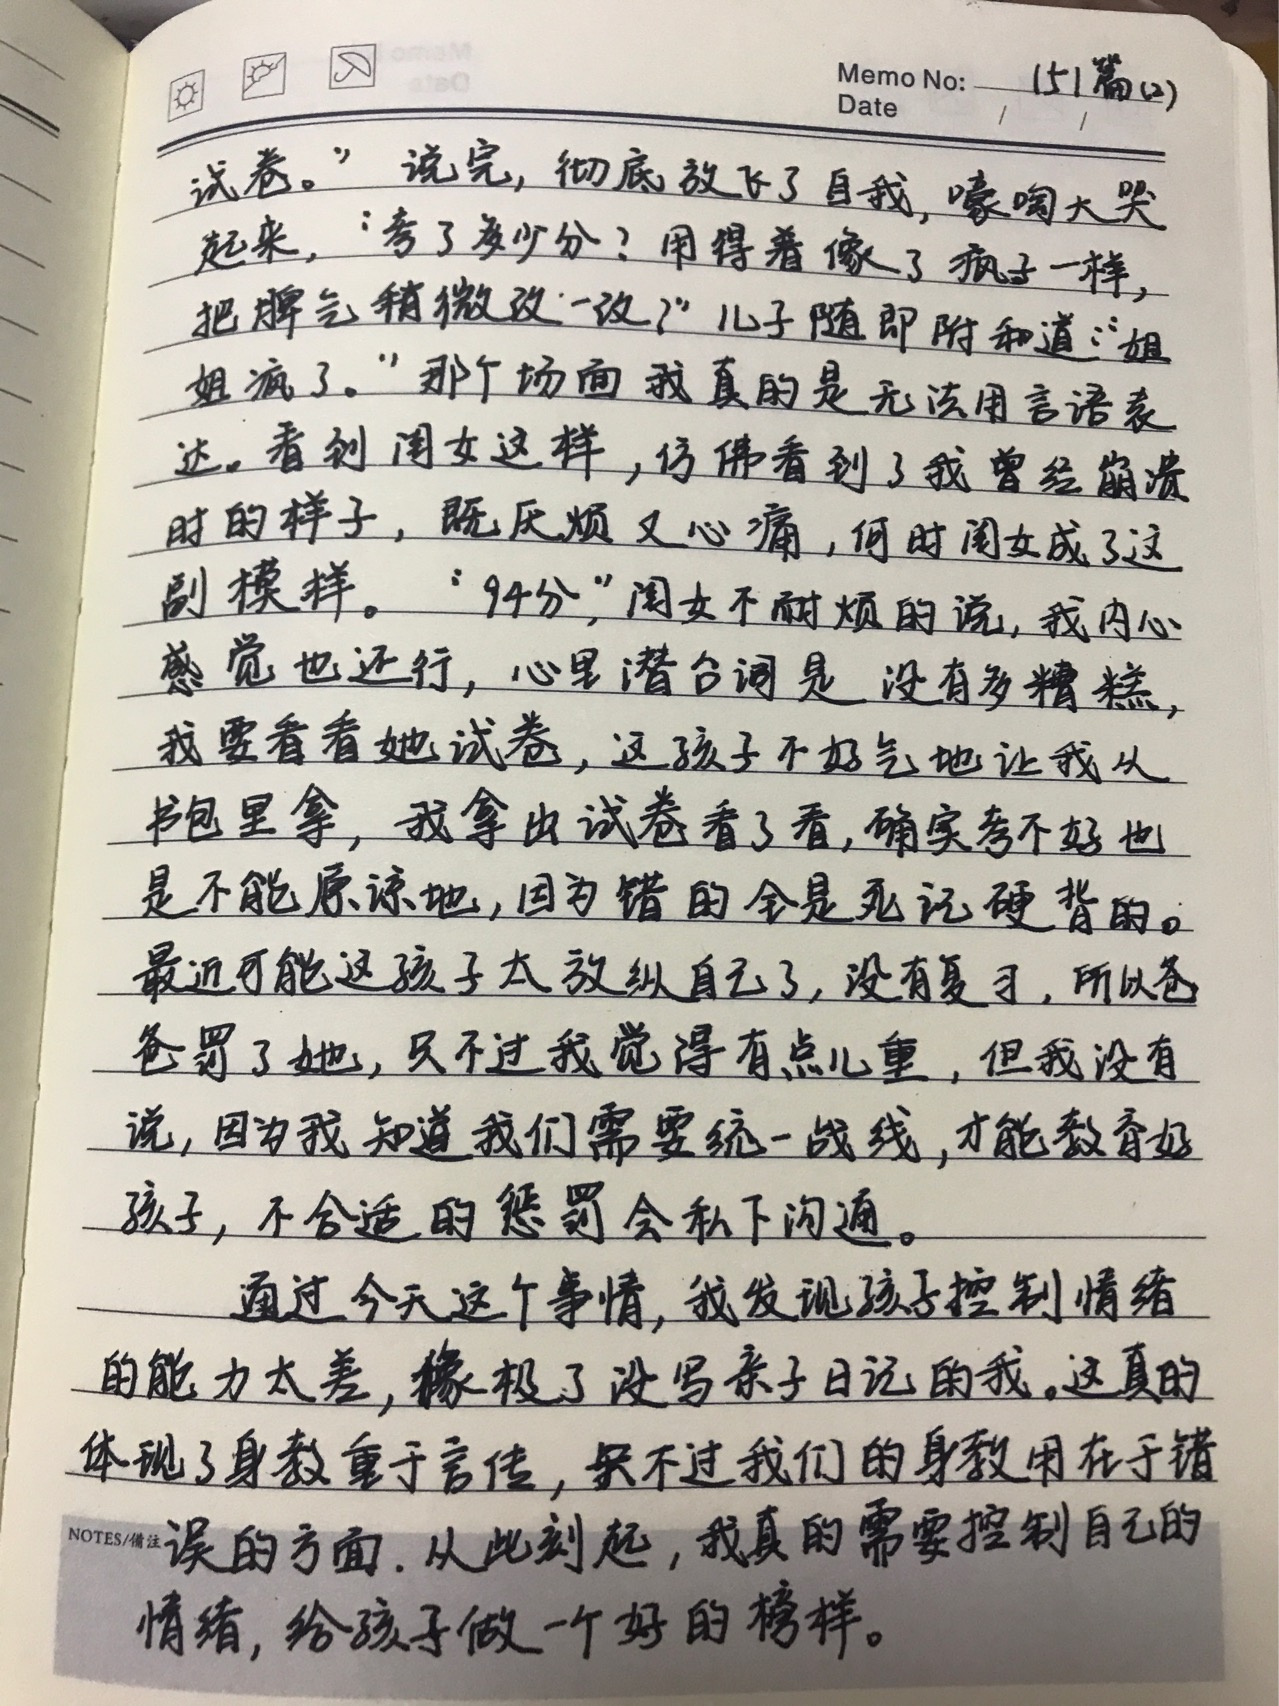 Memo No: 151篇(2)
Date / /
试卷。”说完，彻底放飞了自我，嚎啕大哭
起来，“考了多少分？用得着像了疯子一样，
把脾气稍微改一改？”儿子随即附和道：“姐
姐疯了。”那个场面我真的是无法用言语表
达。看到闺女这样，仿佛看到了我曾经崩溃
时的样子，既厌烦又心痛，何时闺女成了这
副模样。“94分，”闺女不耐烦的说，我内心
感觉也还行，心里潜台词是 没有多糟糕，
我要看看她试卷，这孩子不好气地让我从
书包里拿，我拿出试卷看了看，确实考不好也
是不能原谅地，因为错的全是死记硬背的。
最近可能这孩子太放纵自己了，没有复习，所以爸
爸罚了她，只不过我觉得有点儿重，但我没有
说，因为我知道我们需要统一战线，才能教育好
孩子，不合适的惩罚会私下沟通。
通过今天这个事情，我发现孩子控制情绪
的能力太差，像极了没写亲子日记的我。这真的
体现了身教重于言传，只不过我们的身教用在于错
NOTES/备注 误的方面．从此刻起，我真的需要控制自己的
情绪，给孩子做一个好的榜样。